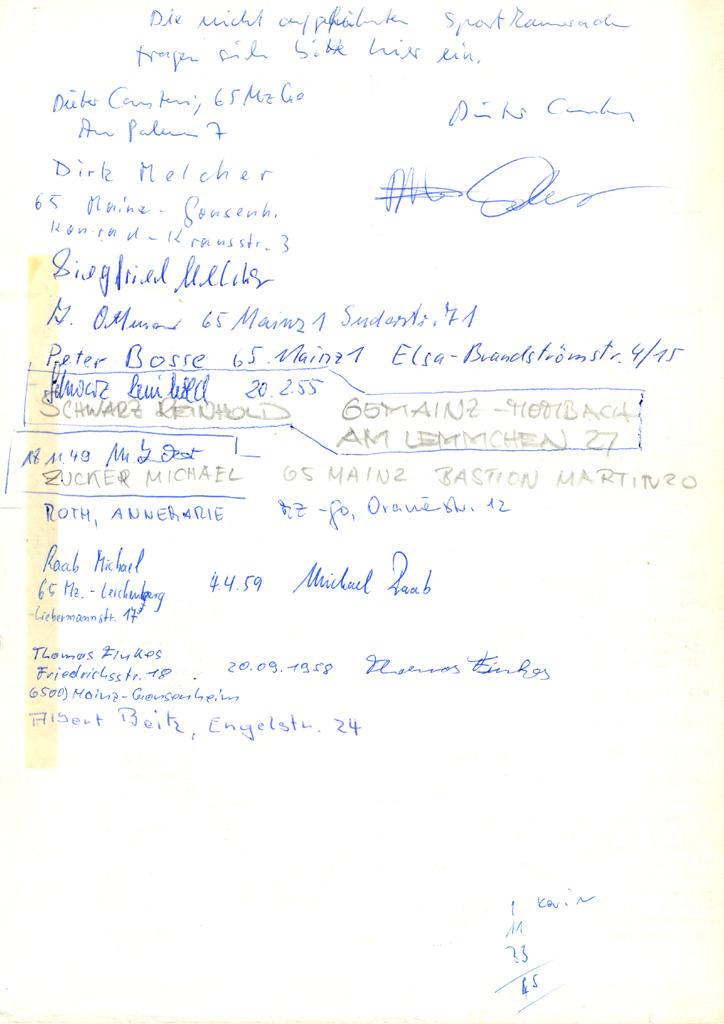 Die nicht aufgeführten Sportkameraden
tragen sich bitte hier ein.
Dieter Carstens, 65 Mz Go
Am 7
Dirk Melcher
65 Mainz - Gonsenh.
Konrad-Krausstr. 3
Siegfried Melcher
65 Mainz 1 Suderstr. 71
Peter Bosse 65 Mainz 1 Elsa-Brandströmstr. 4/15
Schwarz Reinhold 20.2.55
SCHWARZ REINHOLD 65 MAINZ - MOMBACH
AM LEMMCHEN 27
18 11.49
ZUCKER MICHAEL 65 MAINZ BASTION MARTIN
ROTH, ANNEMARIE MZ-Go, Oraniestr. 12
Raab Michael
65 Mz. - Lerchenberg 4.4.59 Michael Raab
Liebermannstr. 17
Thomas Zinkes
Friedrichsstr. 18 20.09.1958 Thomas Zinkes
6500) Mainz-Gonsenheim
Albert Beitz, Engelstr. 24
1 Karin
11
33
45